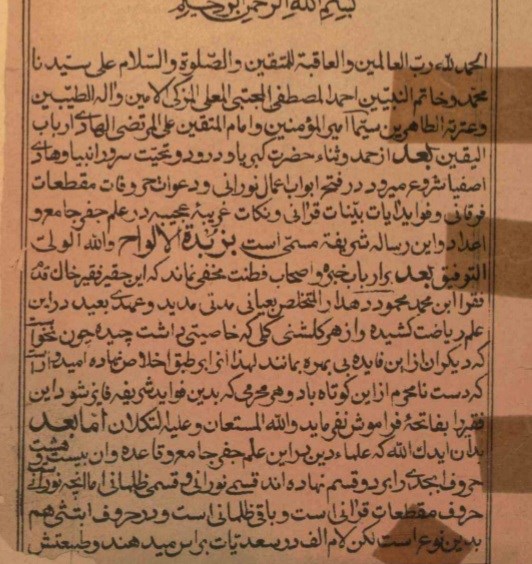 بسم الله الرحمن الرحیم
الحمد لله رب العالمین والعاقبة للمتقین والصلوة والسلام علی سیدنا
محمد وخاتم النبیین احمد المصطفی المجتبی المعلی المزکی الامین واله الطیبین
وعترته الطاهرین سیما امیر المؤمنین وامام المتقین علی المرتضی الهادی ارباب
الیقین بعد از حمد وثناء حضرت کبریا ودرود وتحیت سرور انبیا وهادی
اصفیا شروع میرود در فتح ابواب اعمال نورانی ودعوات حروفات مقطعات
فرقانی وفواید ایات بینات قرانی ونکات غریبهٔ عجیبه در علم جفر جامع و
اعداد واین رساله شریفة مسمی است بزبدة الالواح والله الولی
التوفیق بعد برارباب خبره واصحاب فطنت مخفی نماند که این حقیر فقیر خاك قدم
فقرا ابن محمد محمود دهدار المتخلص بعیانی مدتی مدید وعهدی بعید دراین
علم ریاضت کشیده وازهر کلشنی کلی که خاصیتی داشت چیده چون نخواست
که دیکران از این فایده بی بهره بمانند لهذا انرا بر طبق اخلاص نهاده امید وار است
که دست نامحرم از این کوتاه باد وهر محرمی که بدین فواید شریفه فایز شود این
فقیر را بفاتحهٔ فراموش نفرماید والله المستعان وعلیه التکلان اما بعد
بدان ایدك الله که علماء دین در این علم جفر جامع وقاعده وان بیست و هشت
حروف ابجدی را بردو قسم نهاده اند قسمی نورانی وقسمی ظلمانی اما انچه نورانی
حروف مقطعات قرانی است وباقی ظلمانی است ودر حروف ابتثی هم
بدین نوع است لکن لام الف در سعدیات برابر میدهند وطبیعتش